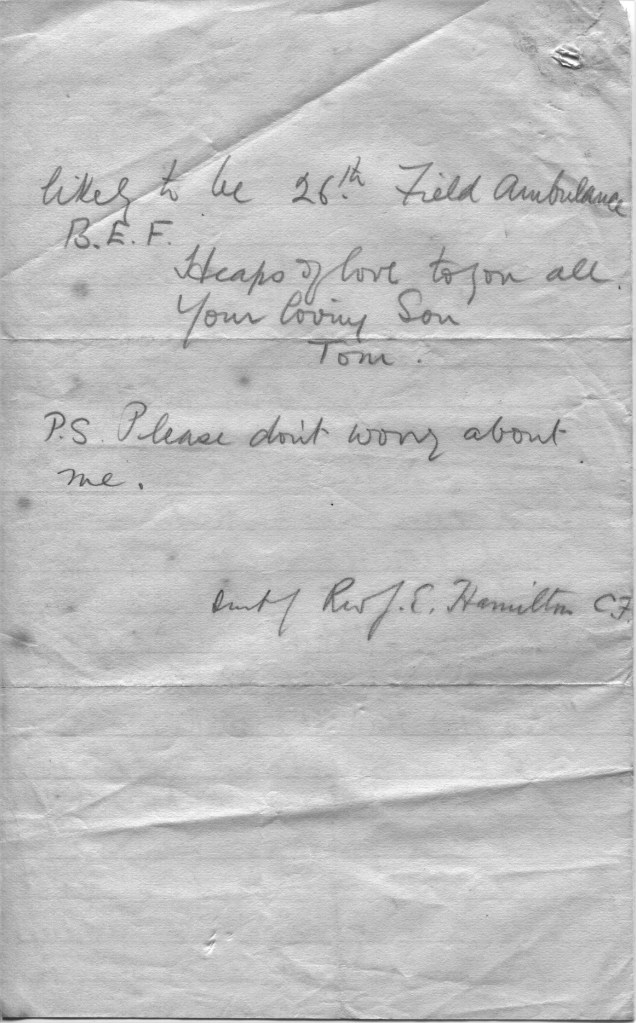 likely to be 26th. Field Ambulance
B.E.F.
Heaps of love to you all.
Your loving Son
Tom.
P.S. Please don't worry about
me.
Rev J. E. Hamilton C.F.